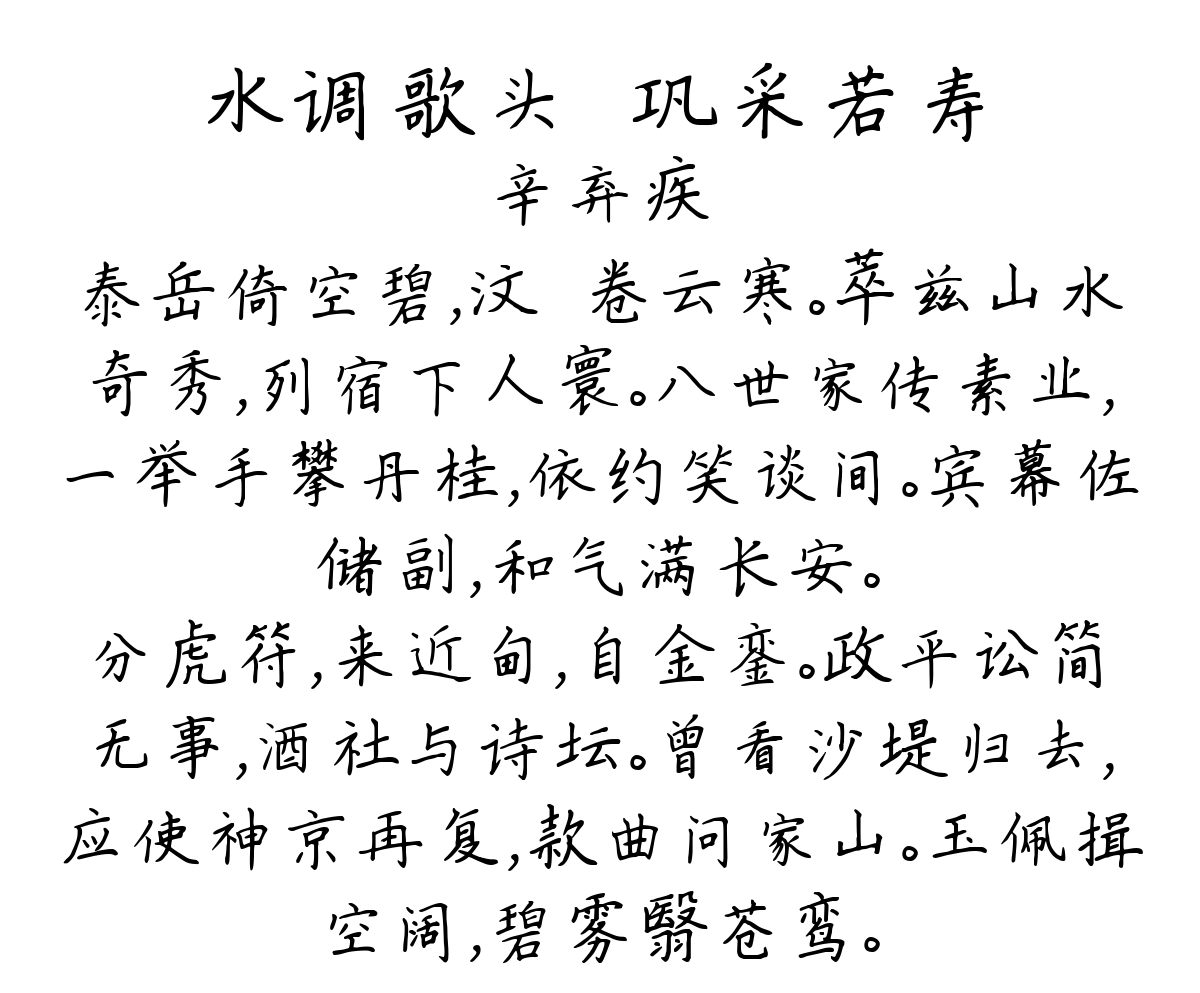 水调歌头 巩采若寿
辛弃疾
泰岳倚空碧,汶 卷云寒。萃兹山水
奇秀,列宿下人寰。八世家传素业,
一举手攀丹桂,依约笑谈间。宾幕佐
储副,和气满长安。
分虎符,来近甸,自金銮。政平讼简
无事,酒社与诗坛。曾看沙堤归去,
应使神京再复,款曲问家山。玉佩揖
空阔,碧雾翳苍鸾。